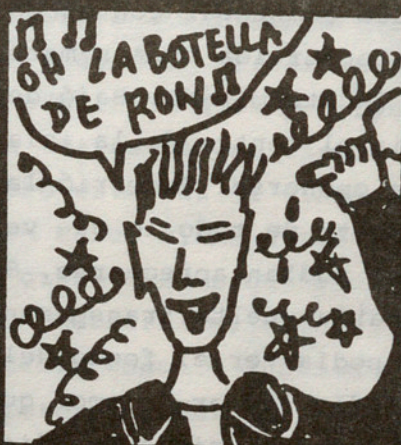 ♫ ♫
OH LA BOTELLA
DE RON ♫